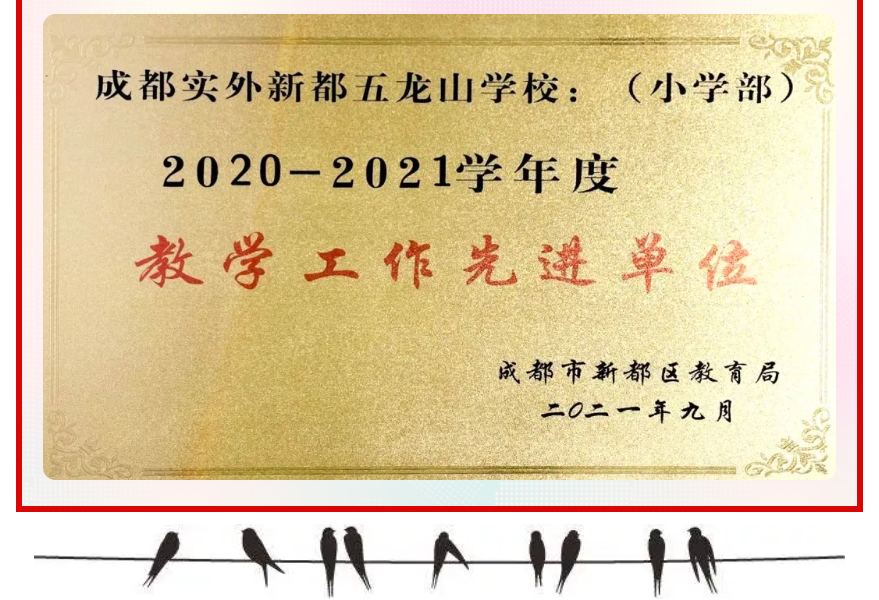 成都实外新都五龙山学校：（小学部）
2020-2021学年度
教学工作先进单位
成都市新都区教育局
二〇二一年九月